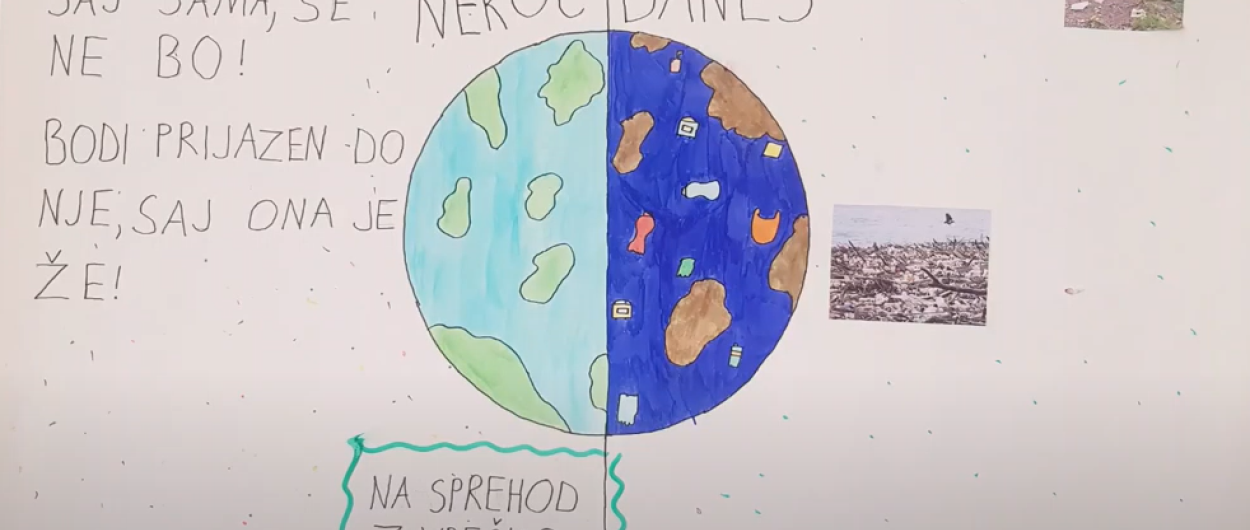 SAJ SAMA, SE
NE BO!
BODI PRIJAZEN DO
NJE, SAJ ONA JE
ŽE!
NEKOČ DANES
NA SPREHOD